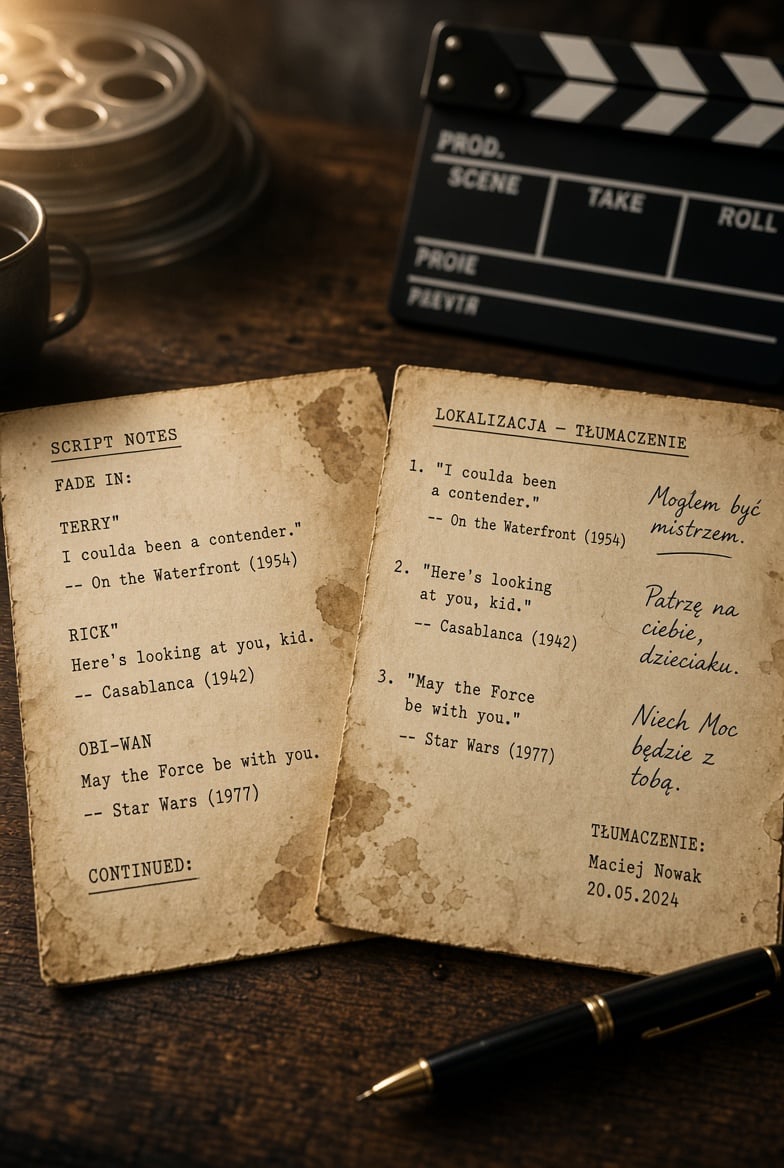 PROD.
SCENE
TAKE
ROLL
PROIE
SCRIPT NOTES
FADE IN:
TERRY"
I coulda been a contender."
-- On the Waterfront (1954)
RICK"
Here's looking at you, kid.
-- Casablanca (1942)
OBI-WAN
May the Force be with you.
-- Star Wars (1977)
CONTINUED:
LOKALIZACJA — TŁUMACZENIE
1. "I coulda been
a contender."
-- On the Waterfront (1954)
Mogłem być
mistrzem.
2. "Here's looking
at you, kid."
-- Casablanca (1942)
Patrzę na
ciebie,
dzieciaku.
3. "May the Force
be with you."
-- Star Wars (1977)
Niech Moc
będzie z
tobą.
TŁUMACZENIE:
Maciej Nowak
20.05.2024